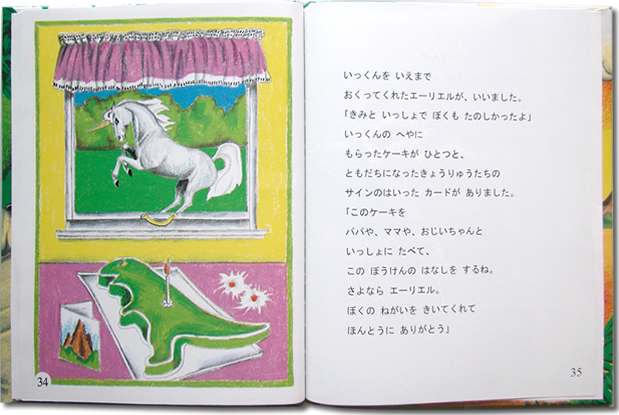 いっくんを いえまで
おくってくれたエーリエルが、いいました。
「きみと いっしょで ぼくも たのしかったよ」
いっくんの へやに
もらったケーキが ひとつと、
ともだちになったきょうりゅうたちの
サインのはいった カードが ありました。
「このケーキを
パパや、ママや、おじいちゃんと
いっしょに たべて、
この ぼうけんの はなしを するね。
さよなら エーリエル。
ぼくの ねがいを きいてくれて
ほんとうに ありがとう」
34
35